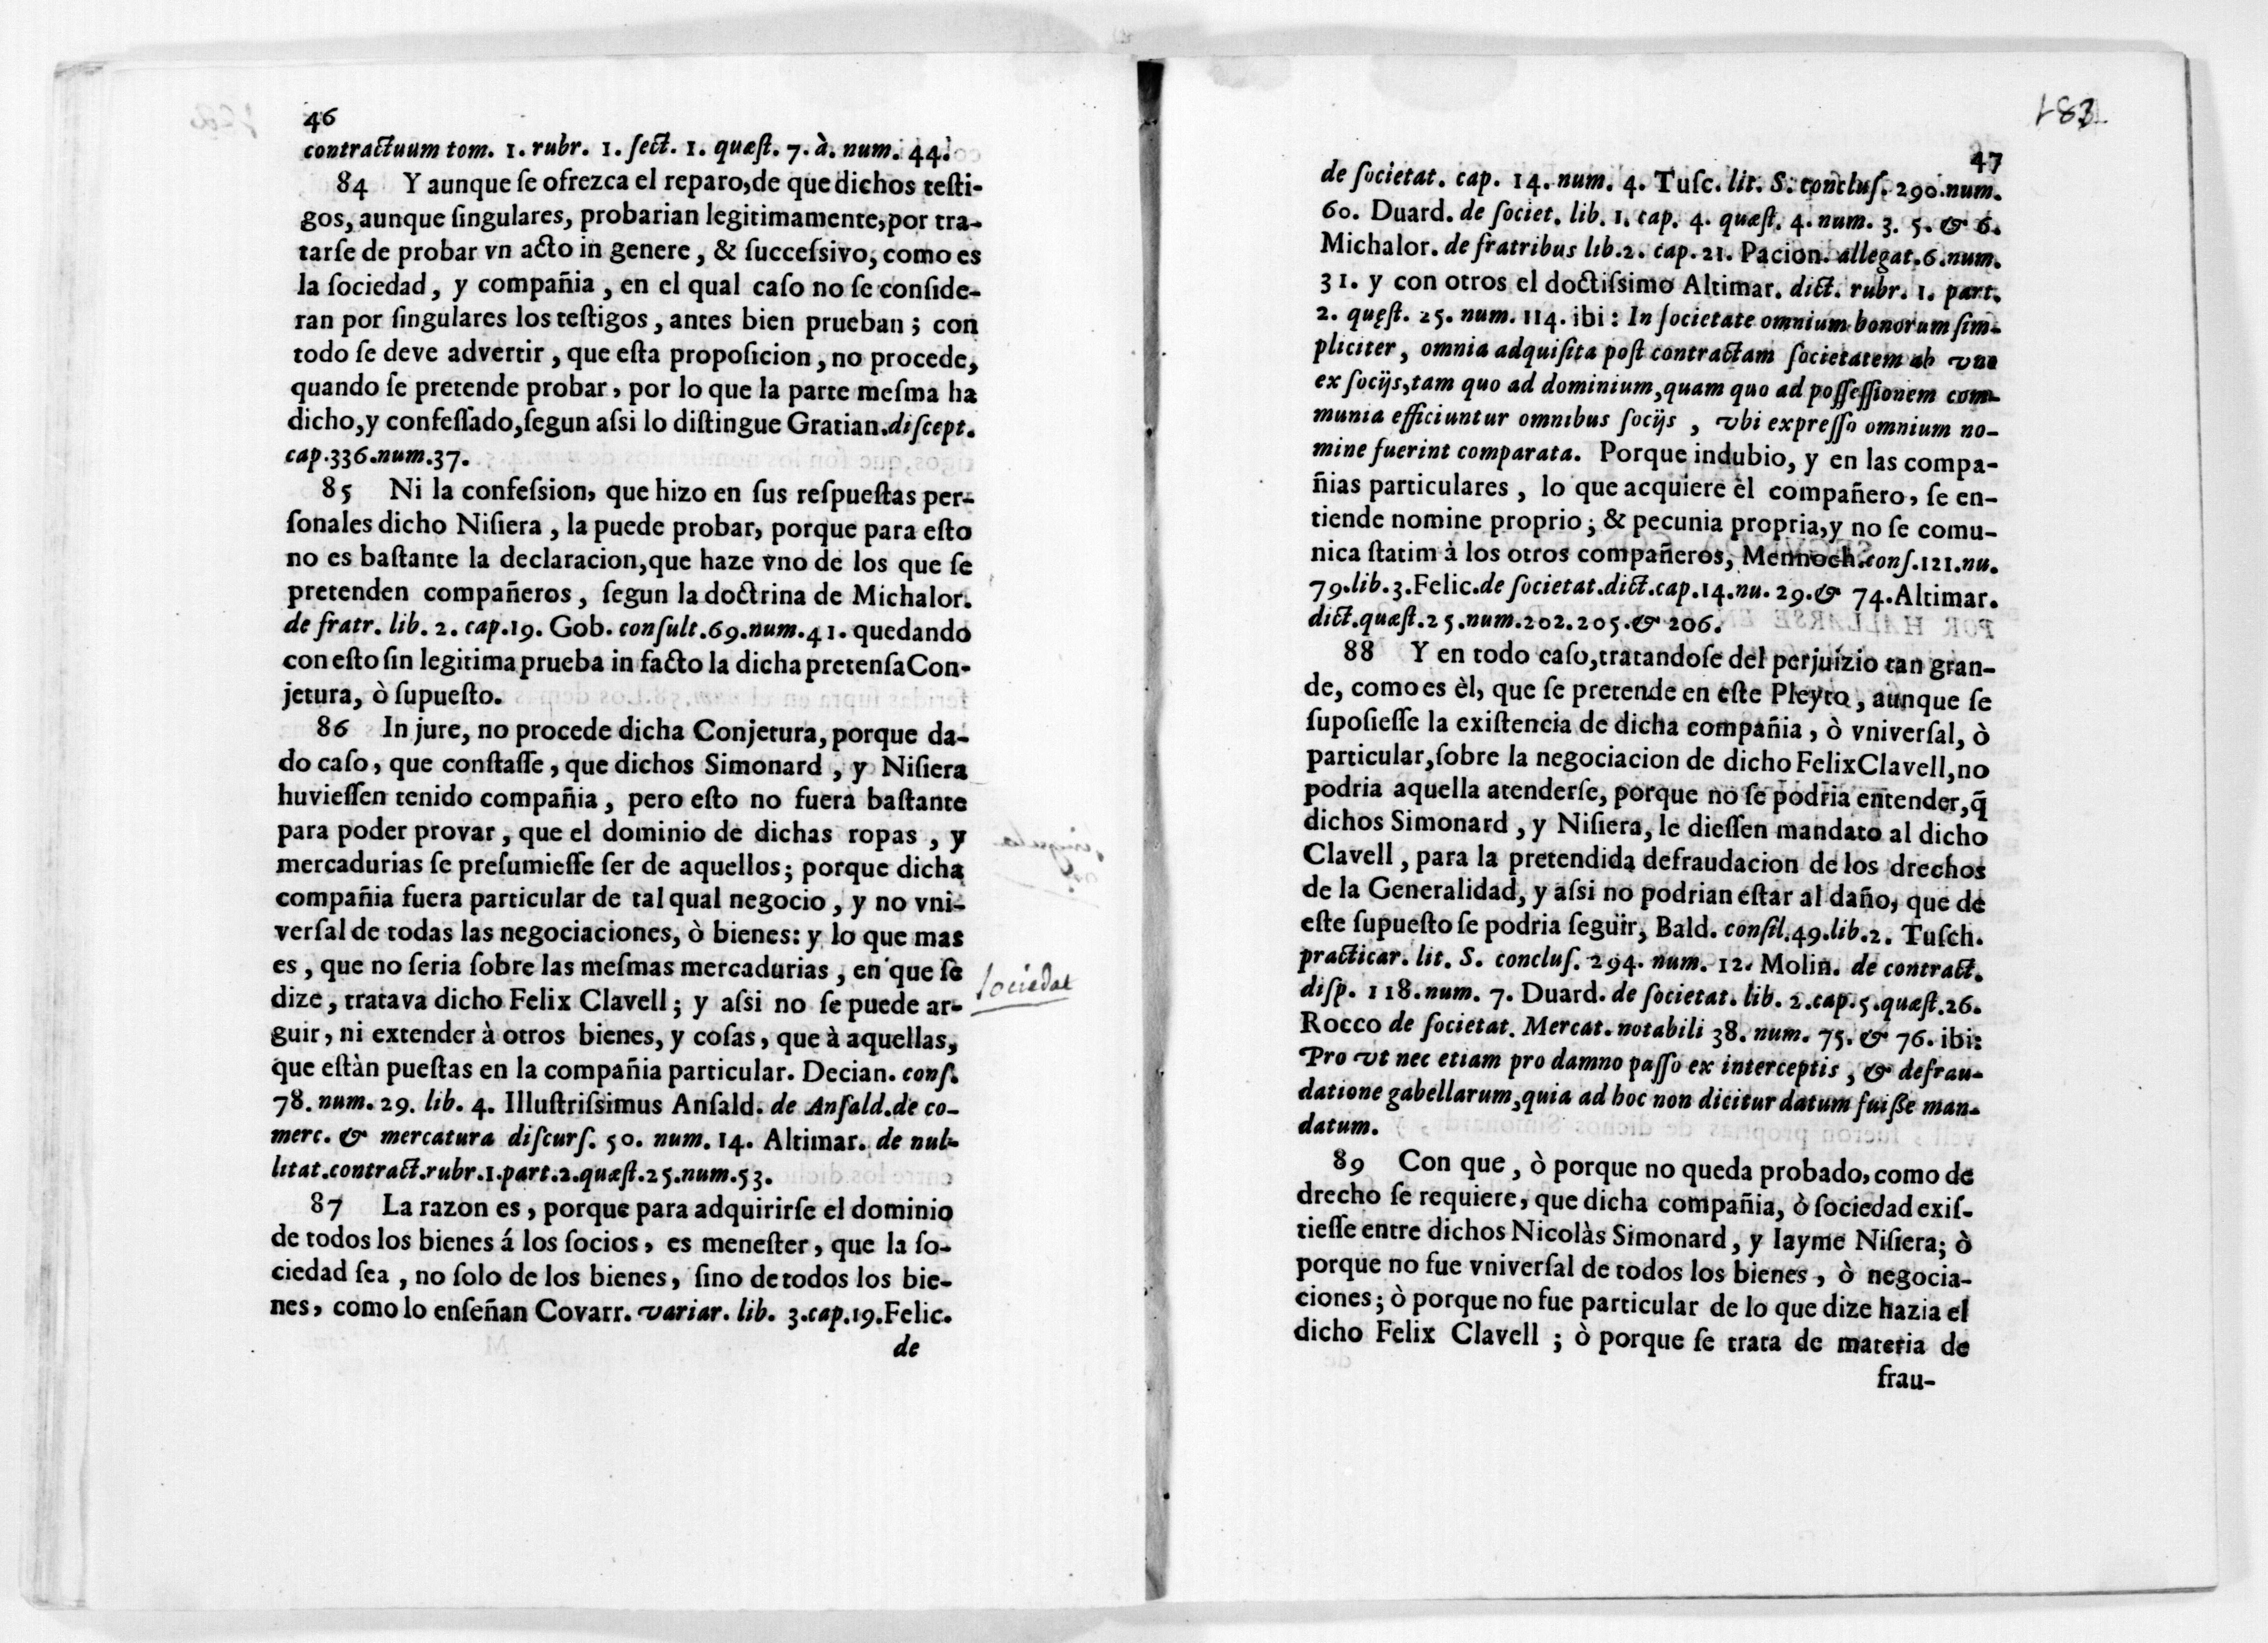 46
contractuum tom. 1. rubr. 1. ſect. 1. quæſt. 7. à. num. 44.
84 Y aunque ſe ofrezca el reparo, de que dichos teſti-
gos, aunque ſingulares, probarian legitimamente, por tra-
tarſe de probar vn acto in genere, & ſucceſsivo, como es
la ſociedad, y compañia, en el qual caſo no ſe conſide-
ran por ſingulares los teſtigos, antes bien prueban; con
todo ſe deve advertir, que eſta propoſicion, no procede,
quando ſe pretende probar, por lo que la parte meſma ha
dicho, y confeſſado, ſegun aſsi lo diſtingue Gratian. diſcept.
cap. 336. num. 37.
85 Ni la confeſsion, que hizo en ſus reſpueſtas per-
ſonales dicho Niſiera, la puede probar, porque para eſto
no es baſtante la declaracion, que haze vno de los que ſe
pretenden compañeros, ſegun la doctrina de Michalor.
de fratr. lib. 2. cap. 19. Gob. conſult. 69. num. 41. quedando
con eſto ſin legitima prueba in facto la dicha pretenſa Con-
jetura, ò ſupueſto.
86 In jure, no procede dicha Conjetura, porque da-
do caſo, que conſtaſſe, que dichos Simonard, y Niſiera
huvieſſen tenido compañia, pero eſto no fuera baſtante
para poder provar, que el dominio de dichas ropas, y
mercadurias ſe preſumieſſe ſer de aquellos; porque dicha
compañia fuera particular de tal qual negocio, y no vni-
verſal de todas las negociaciones, ò bienes: y lo que mas
es, que no ſeria ſobre las meſmas mercadurias, en que ſe
dize, tratava dicho Felix Clavell; y aſsi no ſe puede ar-
guir, ni extender à otros bienes, y coſas, que à aquellas,
que eſtàn pueſtas en la compañia particular. Decian. conſ.
78. num. 29. lib. 4. Illuſtriſsimus Anſald. de Anſald. de co-
merc. & mercatura diſcurſ. 50. num. 14. Altimar. de nul-
litat. contract. rubr. 1. part. 2. quæſt. 25. num. 53.
87 La razon es, porque para adquirirſe el dominio
de todos los bienes á los ſocios, es meneſter, que la ſo-
ciedad ſea, no ſolo de los bienes, ſino de todos los bie-
nes, como lo enſeñan Covarr. variar. lib. 3. cap. 19. Felic.
de
ſociedat
183
47
de ſocietat. cap. 14. num. 4. Tuſc. lit. S. concluſ. 290. num.
60. Duard. de ſociet. lib. 1. cap. 4. quæſt. 4. num. 3. 5. & 6.
Michalor. de fratribus lib. 2. cap. 21. Pacion. allegat. 6. num.
31. y con otros el doctiſsimo Altimar. dict. rubr. 1. part.
2. quęſt. 25. num. 114. ibi: In ſocietate omnium bonorum ſim-
pliciter, omnia adquiſita poſt contractam ſocietatem ab vno
ex ſocijs, tam quo ad dominium, quam quo ad poſſeſſionem com-
munia efficiuntur omnibus ſocijs, vbi expreſſo omnium no-
mine fuerint comparata. Porque indubio, y en las compa-
ñias particulares, lo que acquiere èl compañero, ſe en-
tiende nomine proprio; & pecunia propria, y no ſe comu-
nica ſtatim à los otros compañeros, Mennoch. conſ. 121. nu.
79. lib. 3. Felic. de ſocietat. dict. cap. 14. nu. 29. & 74. Altimar.
dict. quæſt. 25. num. 202. 205. & 206.
88 Y en todo caſo, tratandoſe del perjuizio tan gran-
de, como es èl, que ſe pretende en eſte Pleyto, aunque ſe
ſupoſieſſe la exiſtencia de dicha compañia, ò vniverſal, ò
particular, ſobre la negociacion de dicho Felix Clavell, no
podria aquella atenderſe, porque no ſe podria entender, q̃
dichos Simonard, y Niſiera, le dieſſen mandato al dicho
Clavell, para la pretendida defraudacion de los drechos
de la Generalidad, y aſsi no podrian eſtar al daño, que de
eſte ſupueſto ſe podria ſeguir, Bald. conſil. 49. lib. 2. Tuſch.
practicar. lit. S. concluſ. 294. num. 12. Molin. de contract.
diſp. 118. num. 7. Duard. de ſocietat. lib. 2. cap. 5. quæſt. 26.
Rocco de ſocietat. Mercat. notabili 38. num. 75. & 76. ibi:
Pro vt nec etiam pro damno paſſo ex interceptis, & defrau-
datione gabellarum, quia ad hoc non dicitur datum fuiße man-
datum.
89 Con que, ò porque no queda probado, como de
drecho ſe requiere, que dicha compañia, ò ſociedad exiſ-
tieſſe entre dichos Nicolàs Simonard, y Iayme Niſiera; ò
porque no fue vniverſal de todos los bienes, ò negocia-
ciones; ò porque no fue particular de lo que dize hazia el
dicho Felix Clavell; ò porque ſe trata de materia de
frau-